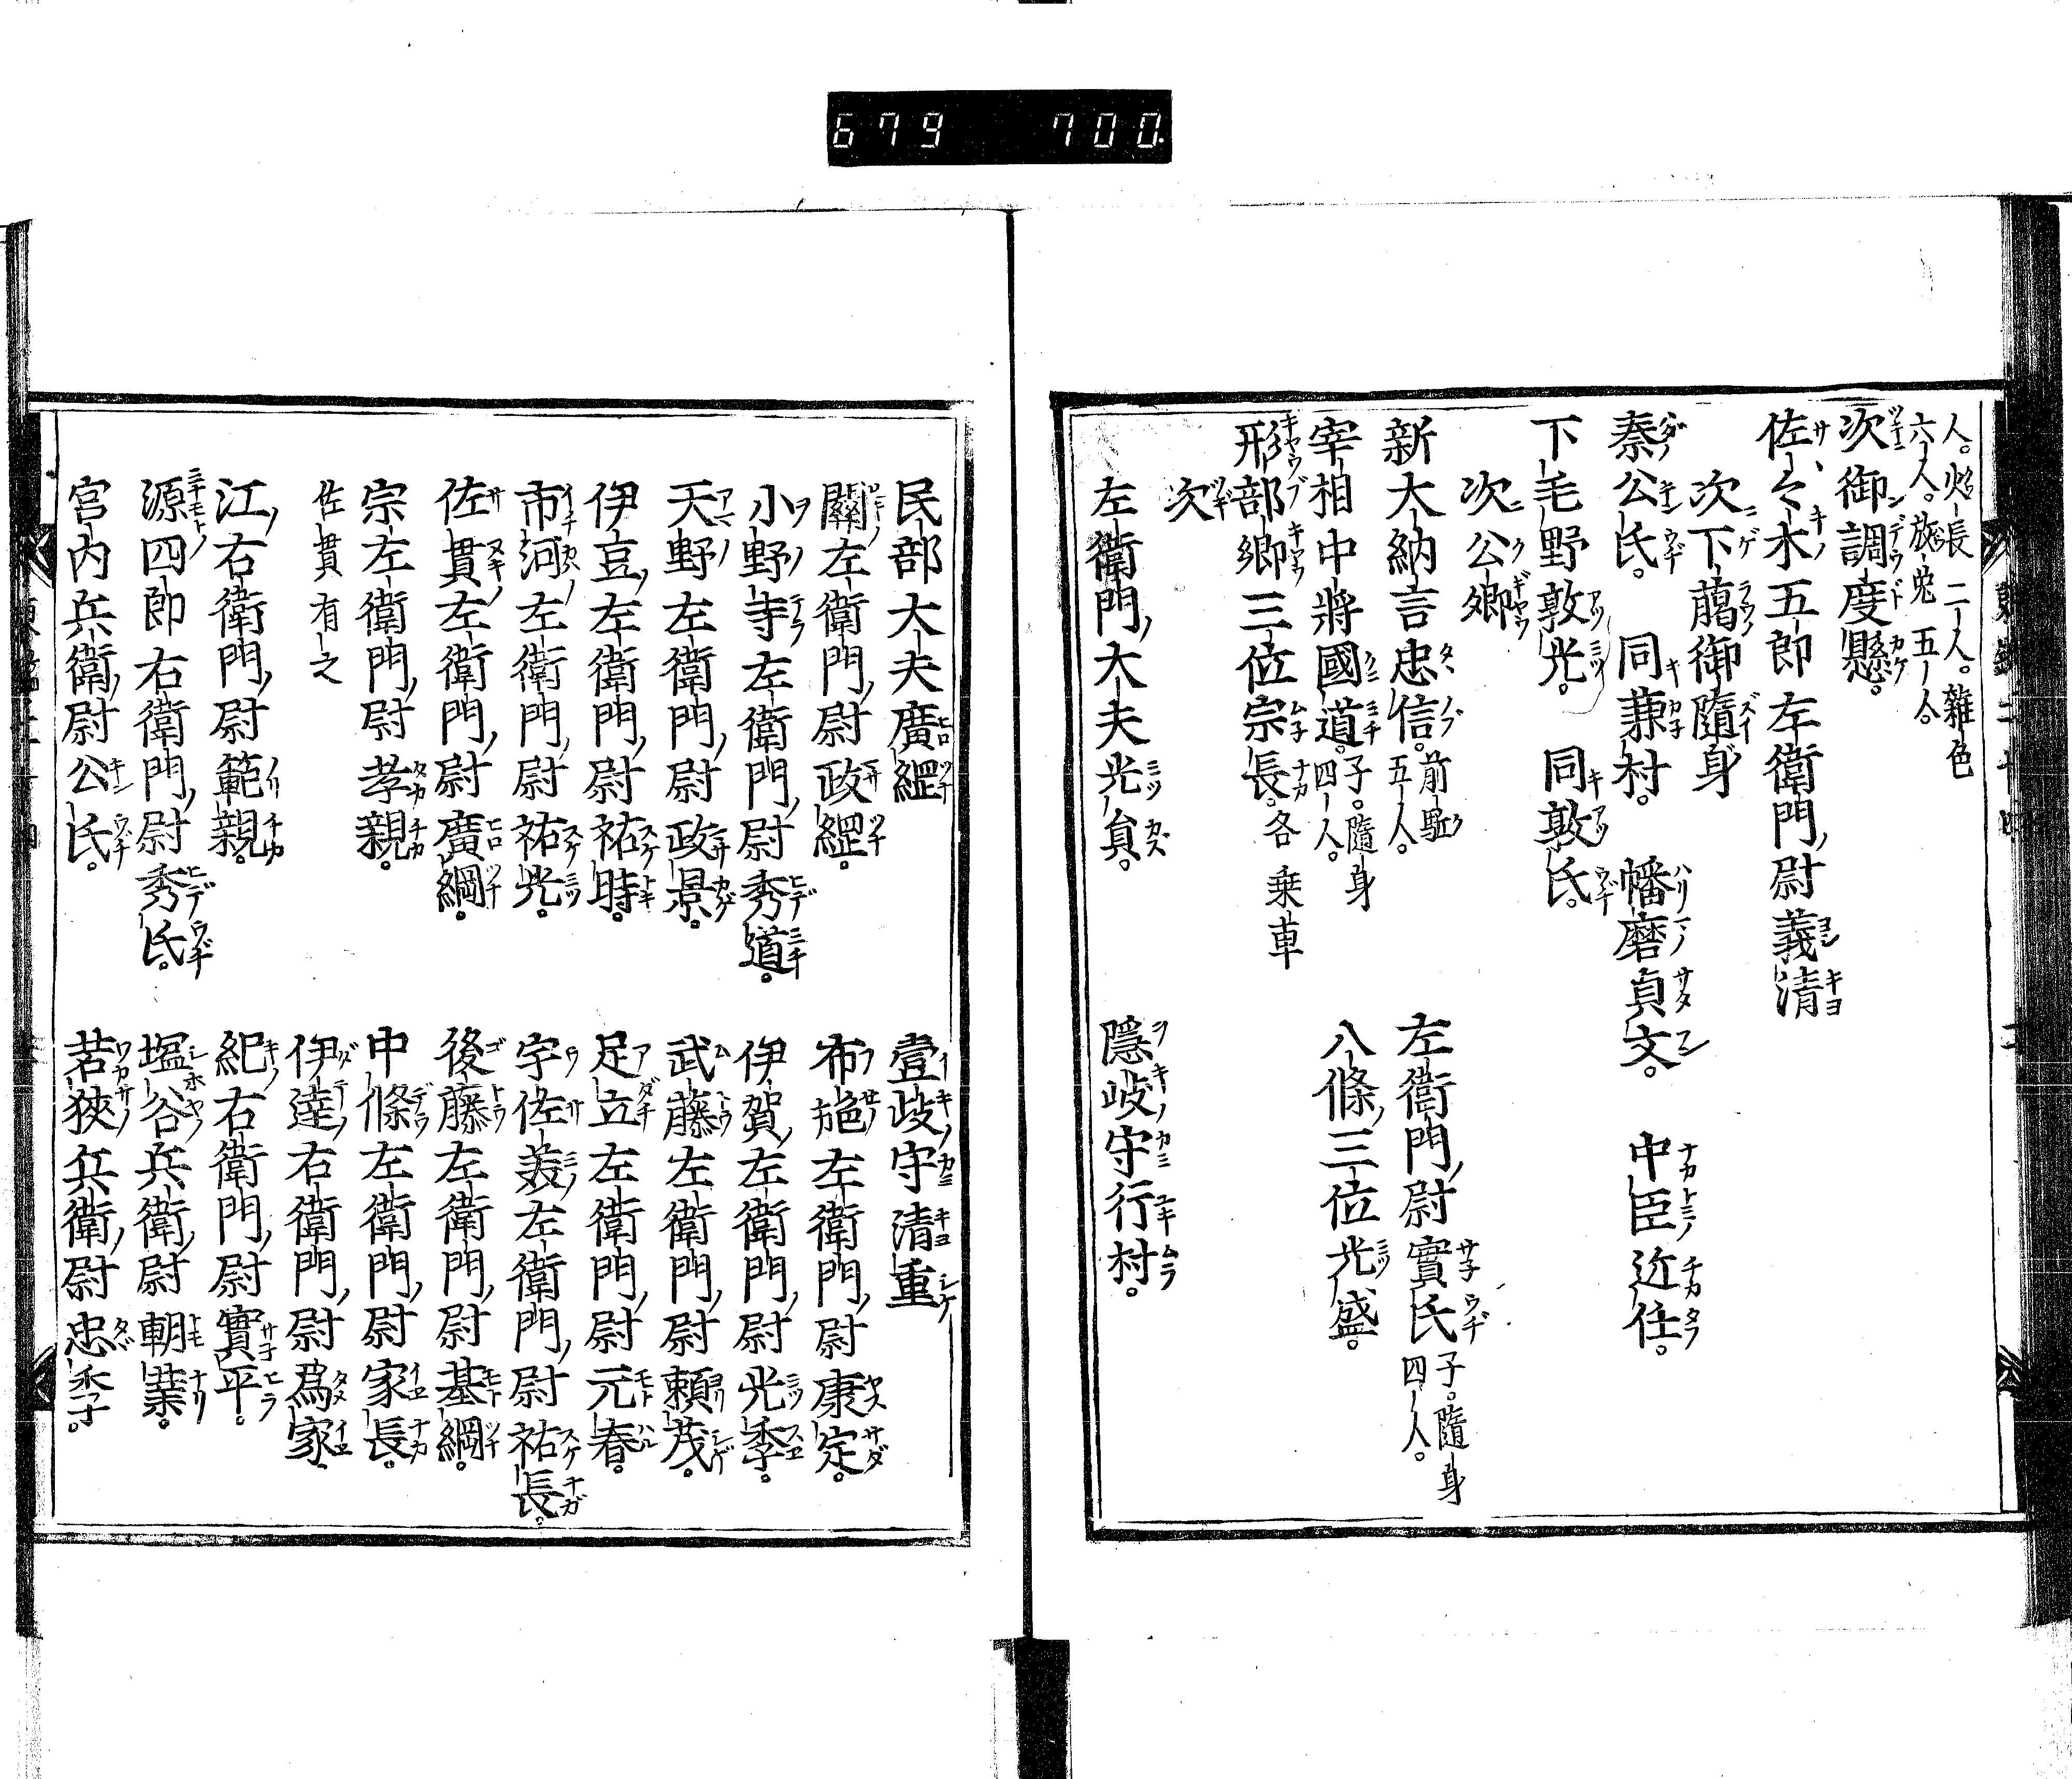 679 700
人。火長二人。雜色
六人。旄兎五人。
次御調度懸。
佐々木五郎左衛門尉義清
次下﨟御隨身
秦公氏。 同兼村。 幡磨貞文。 中臣近任。
下毛野敦光。 同敦氏。
次公卿
新大納言忠信。前駈五人。 左衛門尉實氏子。隨身四人。
宰相中將國道。子。隨身四人。 八條三位光盛。
刑部卿三位宗長。各乗車
次
左衛門大夫光員。 隱岐守行村。
民部大夫廣縕 壹岐守清重
關左衛門尉政縕。 布施左衛門尉康定。
小野寺左衛門尉秀道。 伊賀左衛門尉光季。
天野左衛門尉政景。 武藤左衛門尉頼茂。
伊豆左衛門尉祐時。 足立左衛門尉元春。
市河左衛門尉祐光。 宇佐美左衛門尉祐長。
佐貫左衛門尉廣綱。 後藤左衛門尉基綱。
宗左衛門尉孝親。 中條左衛門尉家長。
佐貫有之 伊達右衛門尉爲家。
江右衛門尉範親。 紀右衛門尉實平。
源四郎右衛門尉秀氏。 塩谷兵衛尉朝業。
宮内兵衛尉公氏。 若狹兵衛尉忠季。